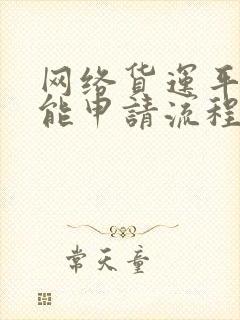 网络货运平
能申請流程
常天童